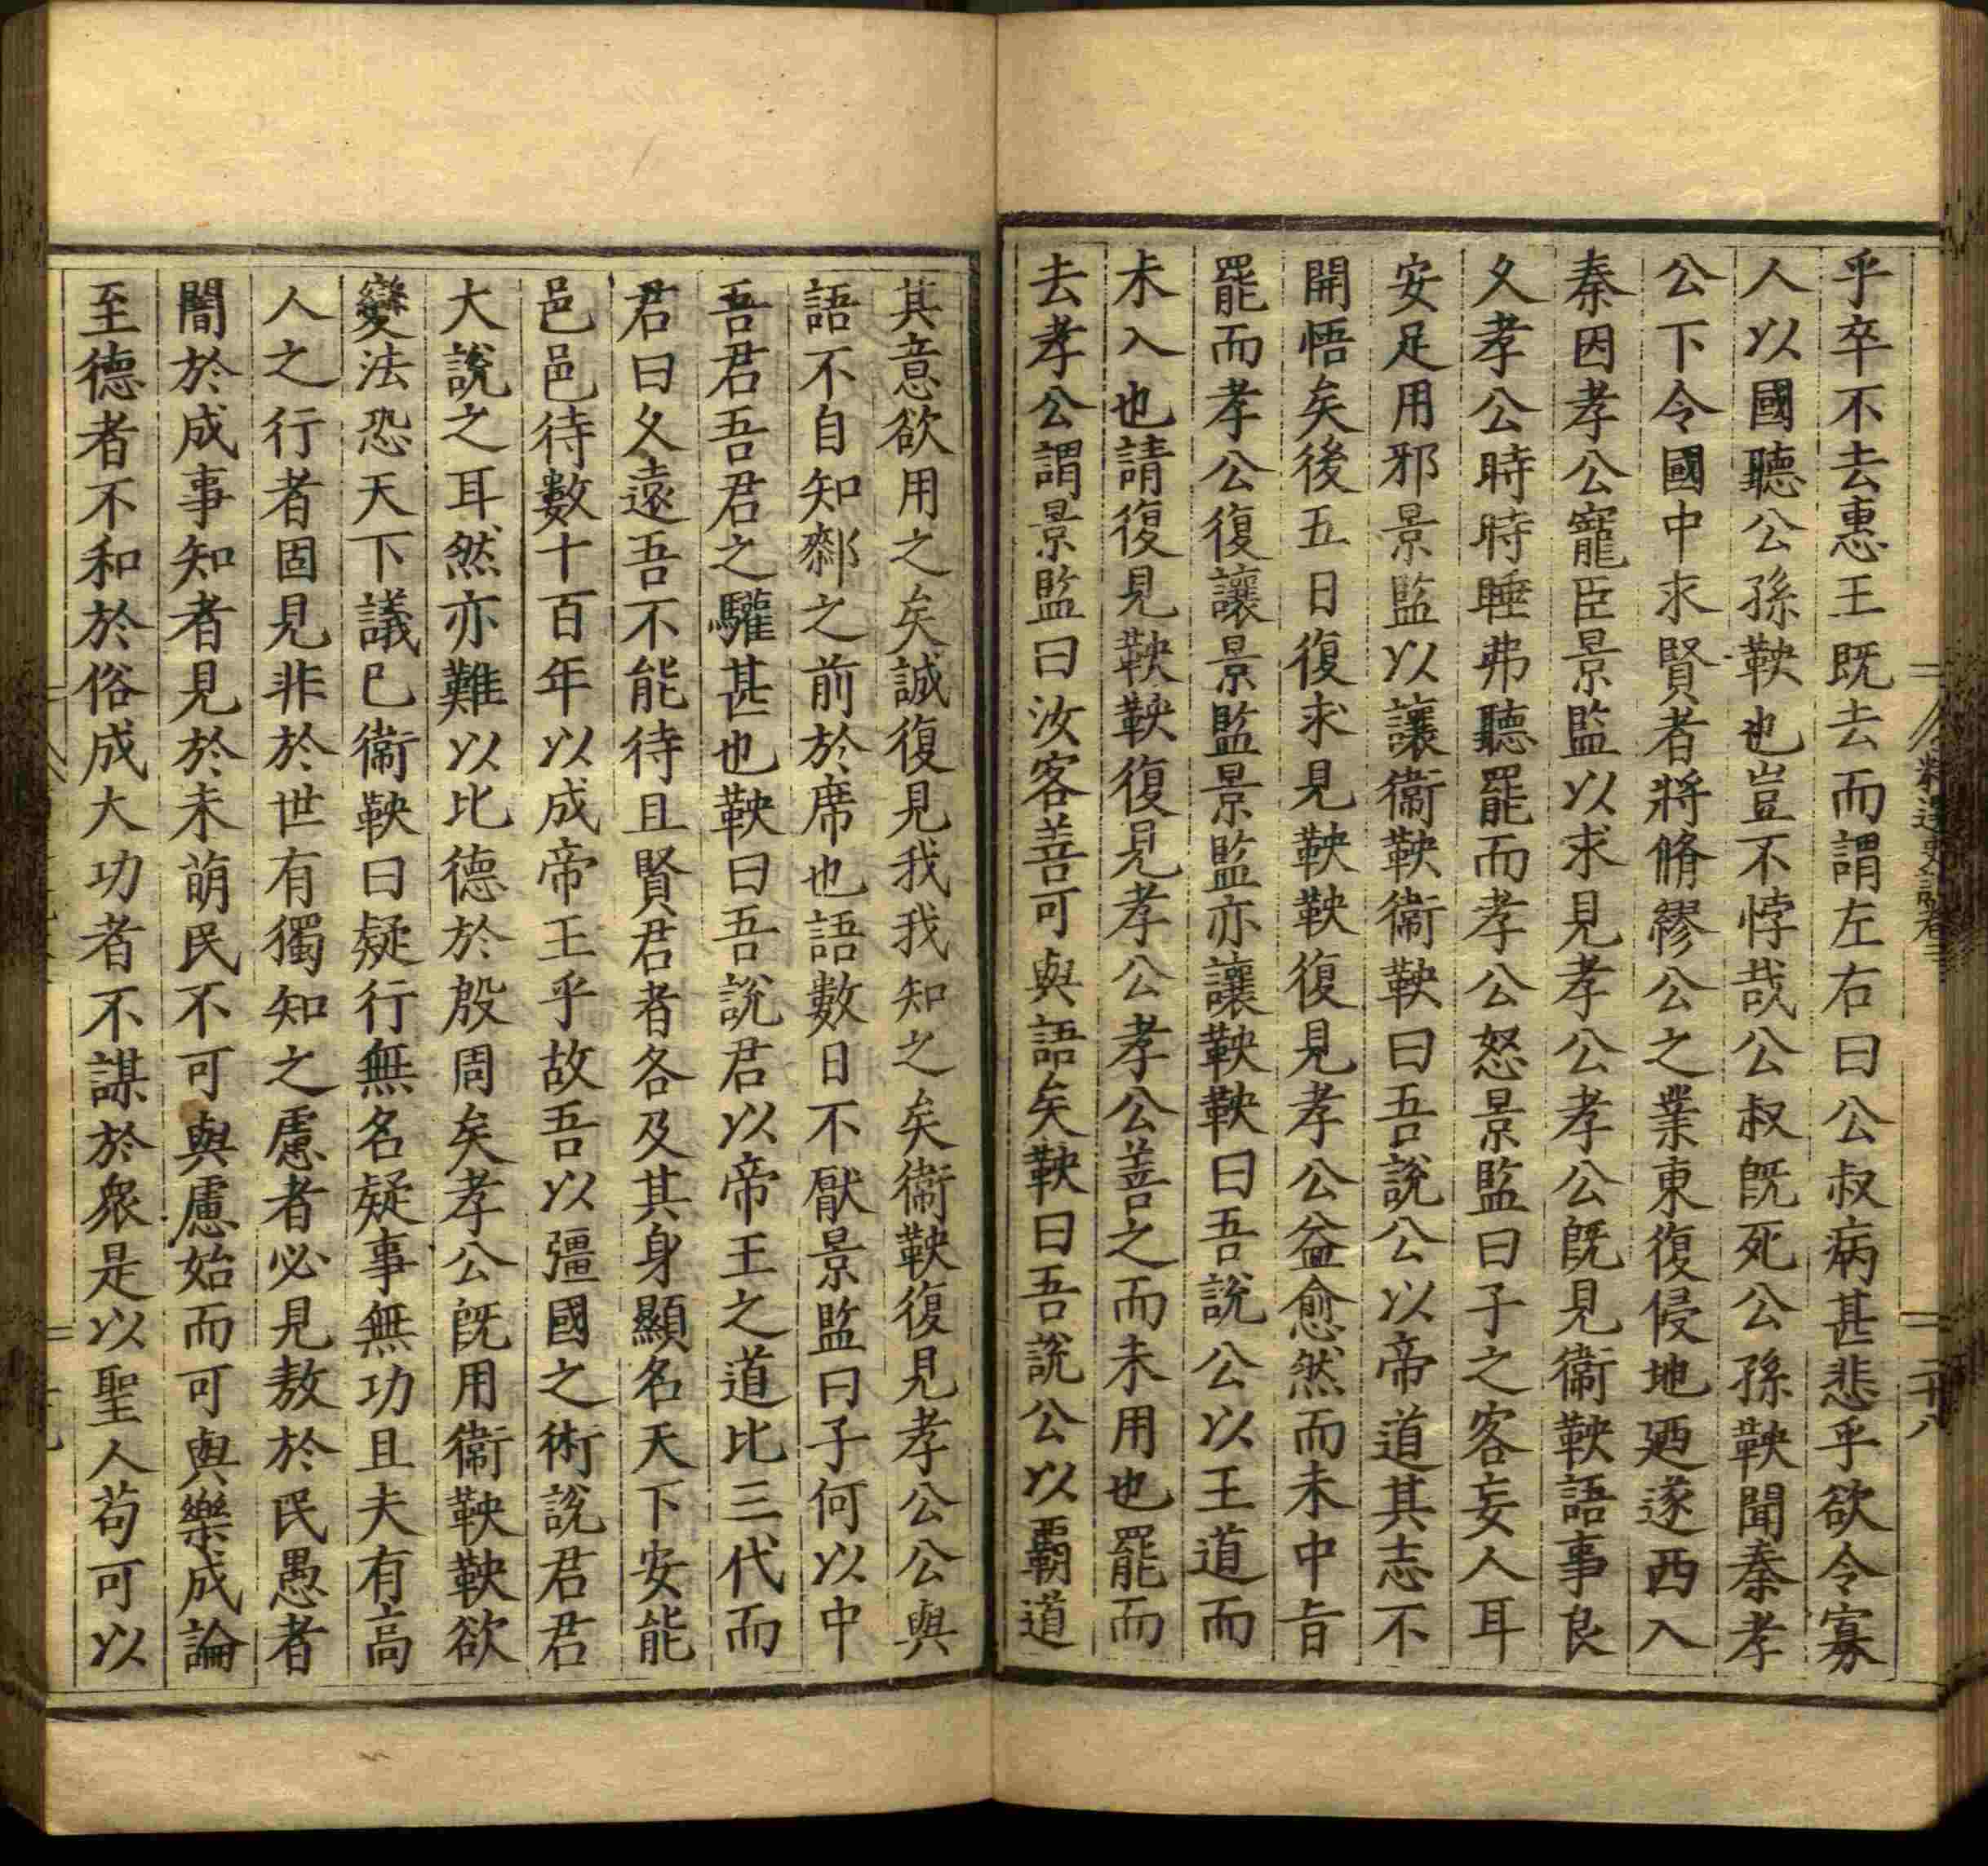 乎卒不去惠王既去而謂左右曰公叔病甚悲乎欲令寡
人以國聽公孫鞅也豈不悖哉公叔既死公孫鞅聞秦孝
公下令國中求賢者將脩繆公之業東復侵地廼遂西入
秦因孝公寵臣景監以求見孝公孝公既見衞鞅語事良
久孝公時時睡弗聽罷而孝公怒景監曰子之客妄人耳
安足用邪景監以讓衞鞅衞鞅曰吾說公以帝道其志不
開悟矣後五日復求見鞅鞅復見孝公益愈然而未中旨
罷而孝公復讓景監景監亦讓鞅鞅曰吾說公以王道而
未入也請復見鞅鞅復見孝公孝公善之而未用也罷而
去孝公謂景監曰汝客善可與語矣鞅曰吾說公以覇道
其意欲用之矣誠復見我我知之矣衞鞅復見孝公公與
語不自知厀之前於席也語數日不厭景監曰子何以中
吾君吾君之驩甚也鞅曰吾說君以帝王之道比三代而
君曰久遠吾不能待且賢君者各及其身顯名天下安能
邑邑待數十百年以成帝王乎故吾以彊國之術說君君
大說之耳然亦難以比德於殷周矣孝公既用衞鞅鞅欲
變法恐天下議已衞鞅曰疑行無名疑事無功且夫有高
人之行者固見非於世有獨知之慮者必見敖於民愚者
闇於成事知者見於未萌民不可與慮始而可與樂成論
至德者不和於俗成大功者不謀於衆是以聖人苟可以
二十八